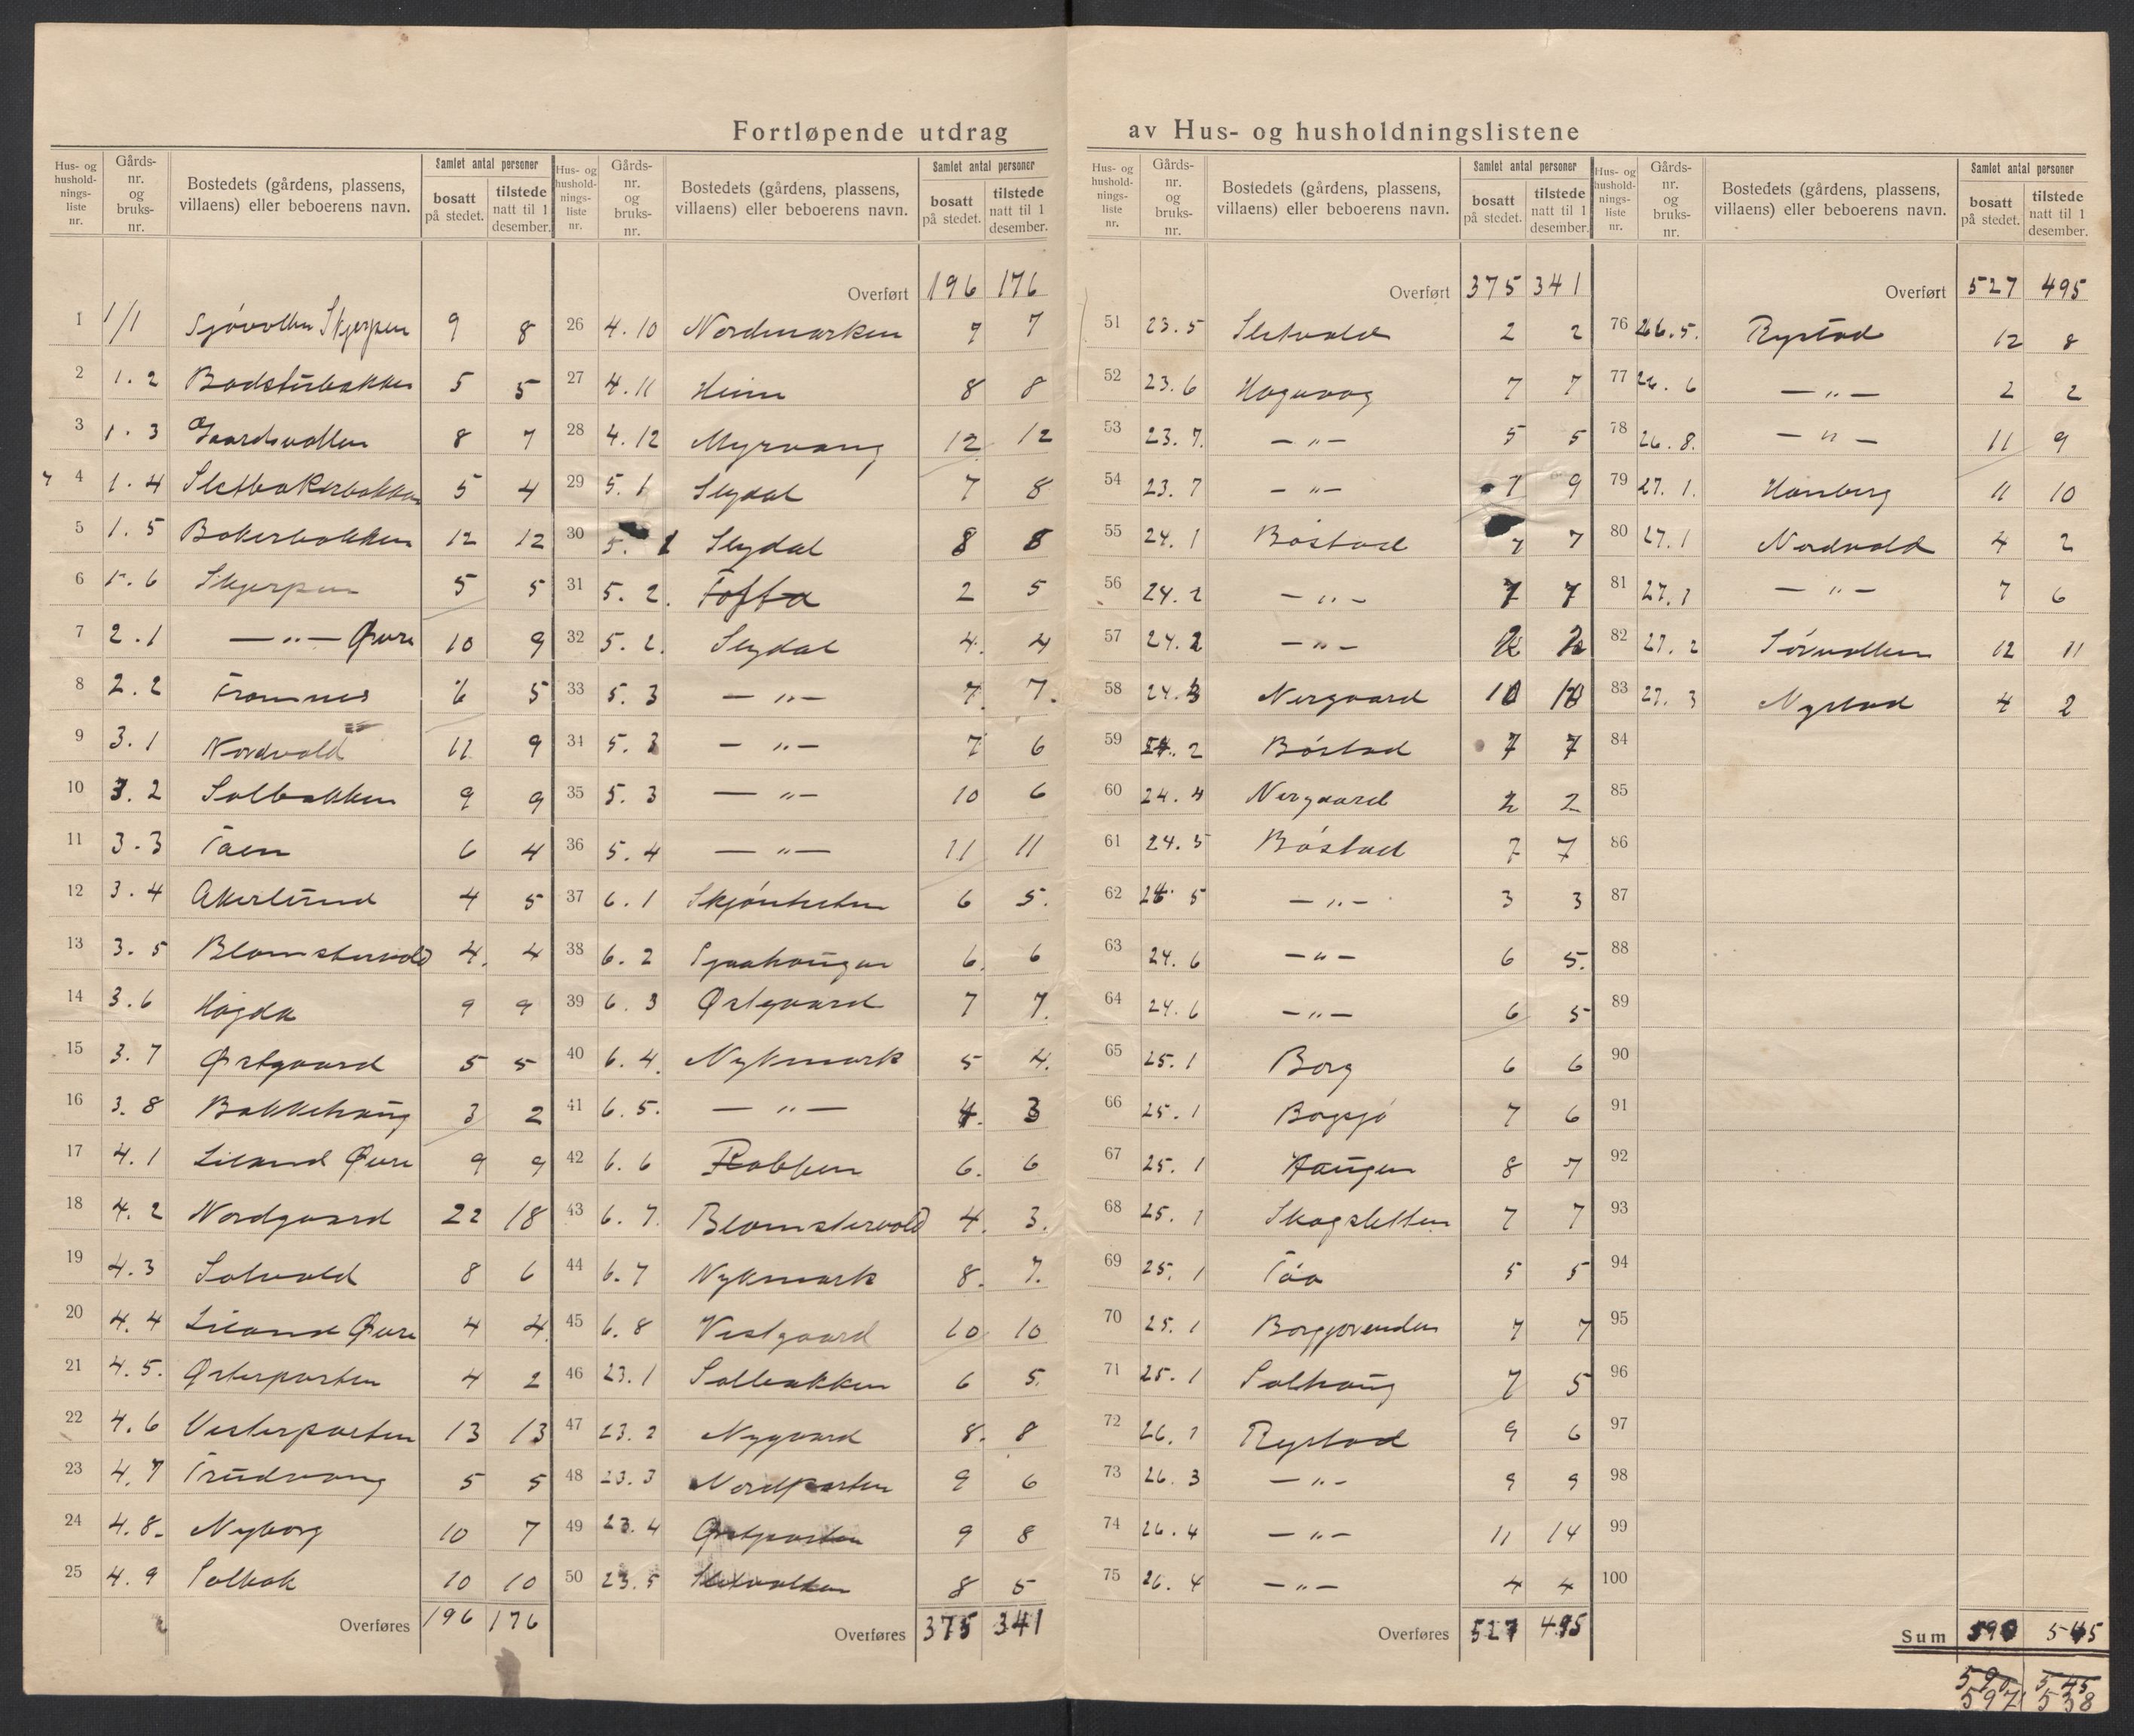 Fortløpende utdrag av Hus- og husholdningslistene
Hus- og husholdningsliste nr. | Gårds-nr. og bruks-nr. | Bostedets (gårdens, plassens, villaens) eller beboerens navn. | Samlet antal personer bosatt på stedet. | tilstede natt til 1 desember.
1 1/1 Sjövollen Skjerpen 9 8
2 1.2 Badstubakken 5 5
3 1.3 Gaardsvollen 8 7
4 1.4 Sletbakerbakken 5 4
5 1.5 Bakerbakken 12 12
6 1.6 Skjerpen 5 5
7 2.1 —"— Øvre 10 9
8 2.2 Framnes 6 5
9 3.1 Nordvold 11 9
10 3.2 Solbakken 9 9
11 3.3 Taen 6 4
12 3.4 Akerlund 4 5
13 3.5 Blomstervold 4. 4
14 3.6 Høgda 9 9
15 3.7 Østgaard 5 5
16 3.8 Bakkehaug 3 2
17 4.1 Liland Øvre 9 9
18 4.2 Nordgaard 22 18
19 4.3 Solvold 8 6
20 4.4 Liland Øvre 4 4
21 4.5. Østerparten 4 2
22 4.6 Vesterparten 13 13
23 4.7 Trudvang 5 5
24 4.8. Nyborg 10 7
25 4.9 Solbak 10 10
Overføres 196 176
Hus- og husholdningsliste nr. | Gårds-nr. og bruks-nr. | Bostedets (gårdens, plassens, villaens) eller beboerens navn. | Samlet antal personer bosatt på stedet. | tilstede natt til 1 desember.
Overført 196 176
26 4.10 Nordmarken 7 7
27 4.11 Heim 8 8
28 4.12 Myrvang 12 12
29 5.1 Slydal 7 8
30 5.1 Slydal 8 8
31 5.2. Tofta 2 5
32 5.2. Slydal 4. 4
33 5.3 —"— 7. 7.
34 5.3 —"— 7 6
35 5.3 —"— 10 6
36 5.4 —"— 11 11
37 6.1 Skjønheten 6 5.
38 6.2 6. 6
39 6.3 Østgaard 7 7.
40 6.4. Nykmark 5 4.
41 6.5. —"— 4. 3
42 6.6 6. 6
43 6.7. Blomstervold 4. 3.
44 6.7 Nykmark 8. 7.
45 6.8 Vestgaard 10 10
46 23.1 Solbakken 6 5.
47 23.2 Nygaard 8. 8
48 23.3 Nordparten 9 6
49 23.4 Østparten 9 8
50 23.5 8 5
Overføres 375 341
Hus- og husholdningsliste nr. | Gårds-nr. og bruks-nr. | Bostedets (gårdens, plassens, villaens) eller beboerens navn. | Samlet antal personer bosatt på stedet. | tilstede natt til 1 desember.
Overført 375 341
51 23.5 Sletvold 2 2
52 23.6 Hagevag 7 7
53 23.7. —"— 5 5
54 23.7 —"— 7 9
55 24.1 Bøstad 7 7
56 24.2 —"— 7 7
57 24.2 —"— 2 2
58 24.3 Nergaard 10 10
59 24.2 Bøstad 7 7
60 24.4 Nergaard 2 2
61 24.5 Bøstad 7 7
62 24.5 —"— 3 3
63 24.6 —"— 6 5.
64 24.6 —"— 6 5
65 25.1 Borg 6 6
66 25.1 Borgsjø 7 6
67 25.1 Haugen 8 7
68 25.1 Skogsletten 7 7
69 25.1 Tåa 5 5
70 25.1 7 7
71 25.1 Solhaug 7 5
72 26.1 Rystad 9 6
73 26.3 —"— 9 9
74 26.4 —"— 11 14
75 26.4 —"— 4 4
Overføres 527 495
Hus- og husholdningsliste nr. | Gårds-nr. og bruks-nr. | Bostedets (gårdens, plassens, villaens) eller beboerens navn. | Samlet antal personer bosatt på stedet. | tilstede natt til 1 desember.
Overført 527 495
76 26.5. Rystad 12 8
77 26.6 —"— 2 2
78 26.8. —"— 11 9
79 27.1. Hanberg 11 10
80 27.1 Nordvold 4 2
81 27.1 —"— 7 6
82 27.2 Sørvollen 12 11
83 27.3 Nystad 4 2
84
85
86
87
88
89
90
91
92
93
94
95
96
97
98
99
100
Sum 590 545
590 545
597 538